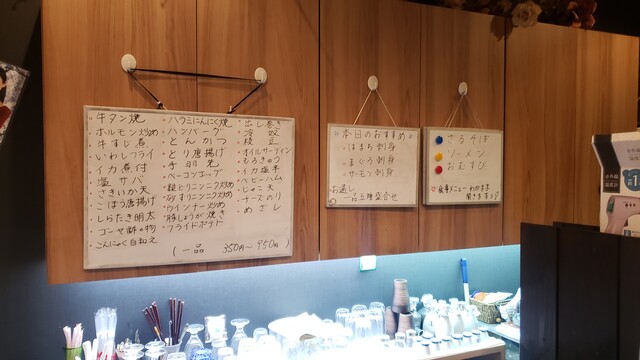 牛タン焼
ホルモン炒め
牛すじ煮
いわしフライ
イカ煮付
塩サバ
さきいか天
ごぼう唐揚げ
しらたき明太
ゴーヤ酢の物
こんにゃく白和え
ハラミにんにく焼
ハンバーグ
とんかつ
とり唐揚げ
手羽先
ベーコンエッグ
砂すりニンニク炒め
ウインナー炒め
豚しょうが焼き
フライドポテト
出し巻き
冷奴
枝豆
オイルサーディン
もろきゅう
イカ塩辛
ベビーハム
じゃこ天
チーズのり
めざし
(一品 350円~950円)
本日のおすすめ
はまち刺身
まぐろ刺身
サーモン刺身
お通し
一品五種盛合せ
ざるそば
ソーメン
おむすび
食事メニューわかれます